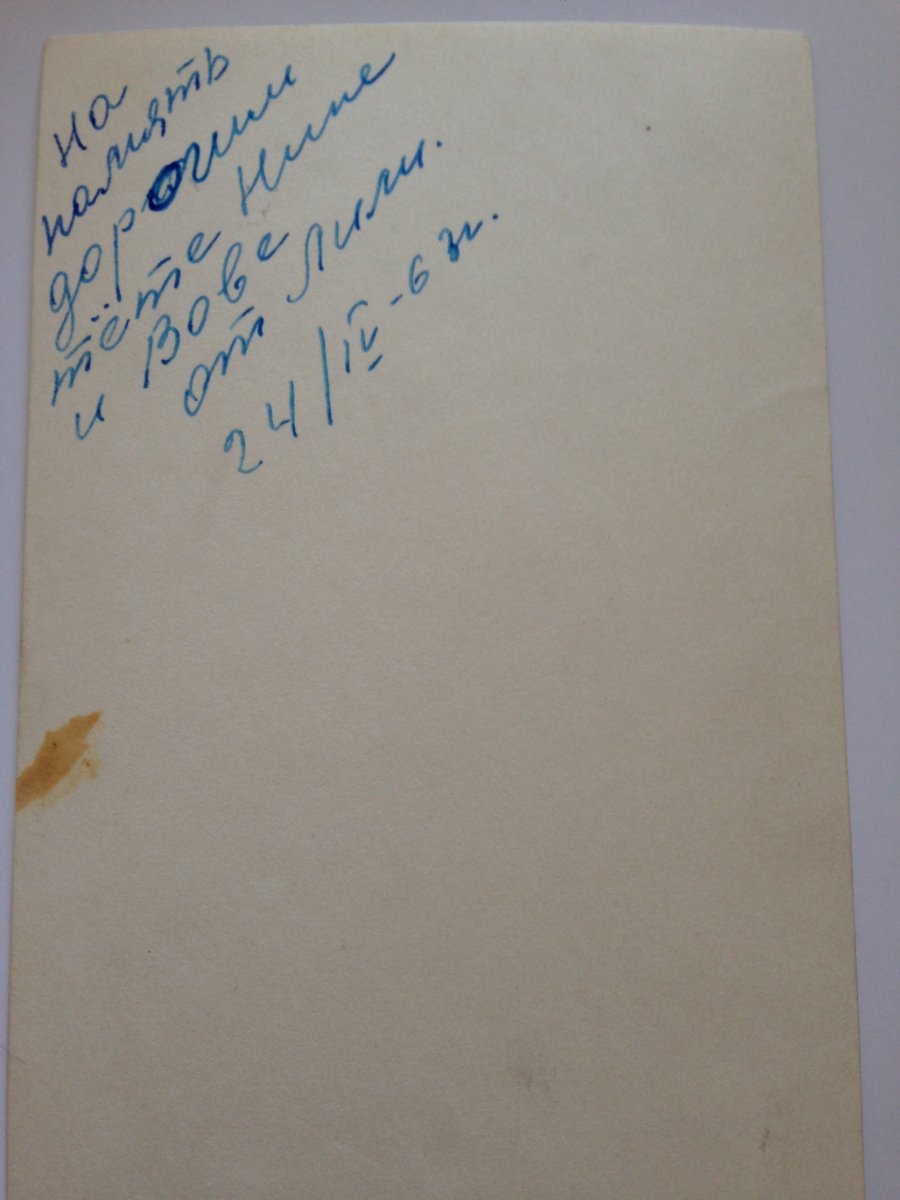 на
память
дорогим
тёте Нине
и Вове
от Лили.
24/IV-63г.